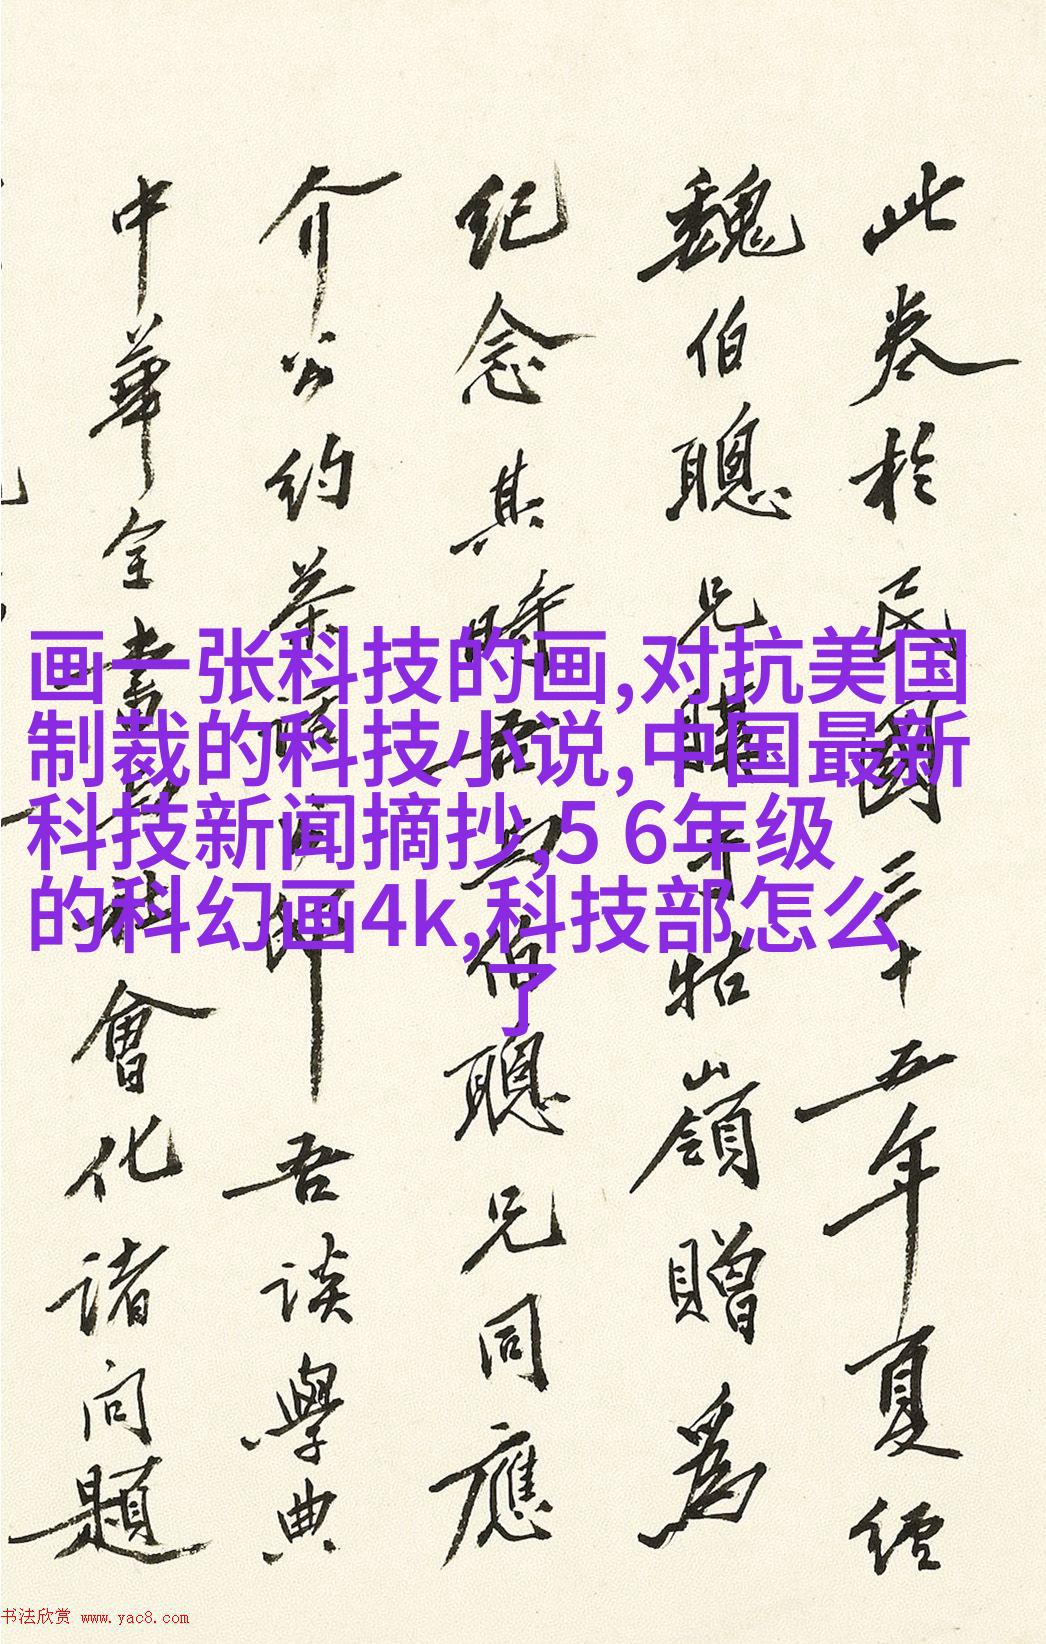 此卷於民國三十五年夏經
魏伯聰兄購于牯嶺贈爲
紀念其時吾与伯聰兄同應
介公約茶話□師吾談學典
中華全書与社會化諸问題
画一张科技的画,对抗美国
制裁的科技小说,中国最新
科技新闻摘抄,5 6年级
的科幻画4k,科技部怎么
了
书法欣赏 www.yac8.com